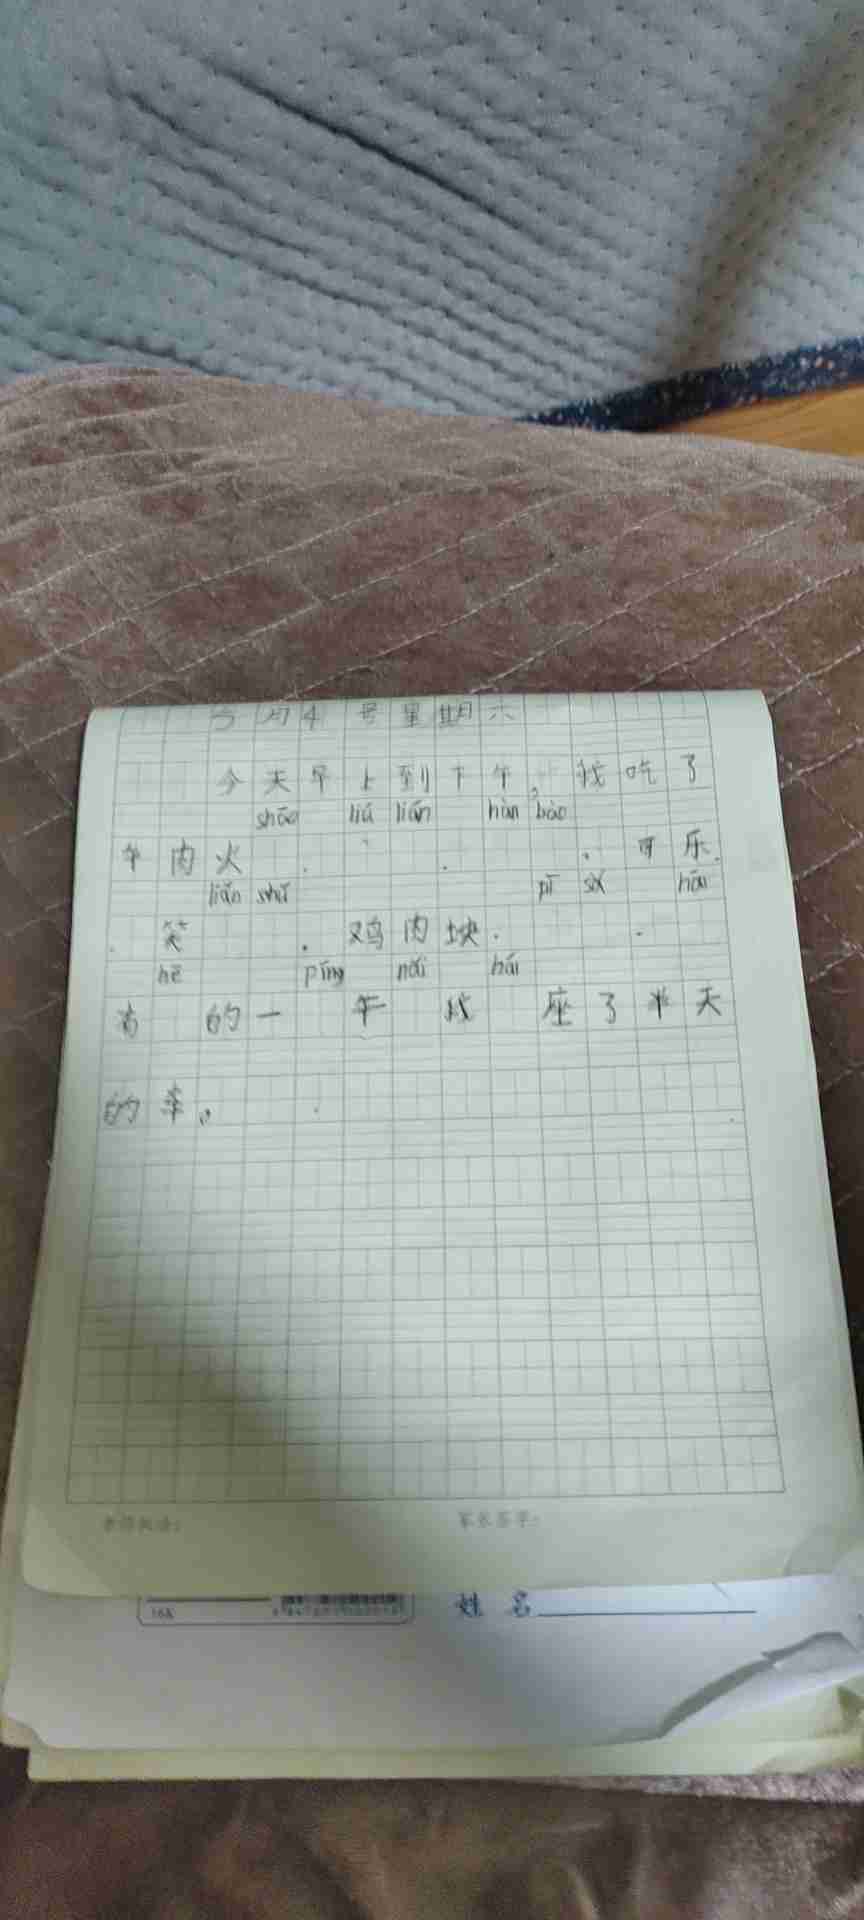 月4号星期六
今天早上到下午，我吃了
shāo liú lián hàn bǎo
牛肉火 . . . 可乐.
liǎn shǔ pī sà hāi
. 笑 . 鸡肉块. .
hē píng nǎi hái
有 的一 午 我 座了半天
的车。
老师的话：
家长签字：
16K
姓 名